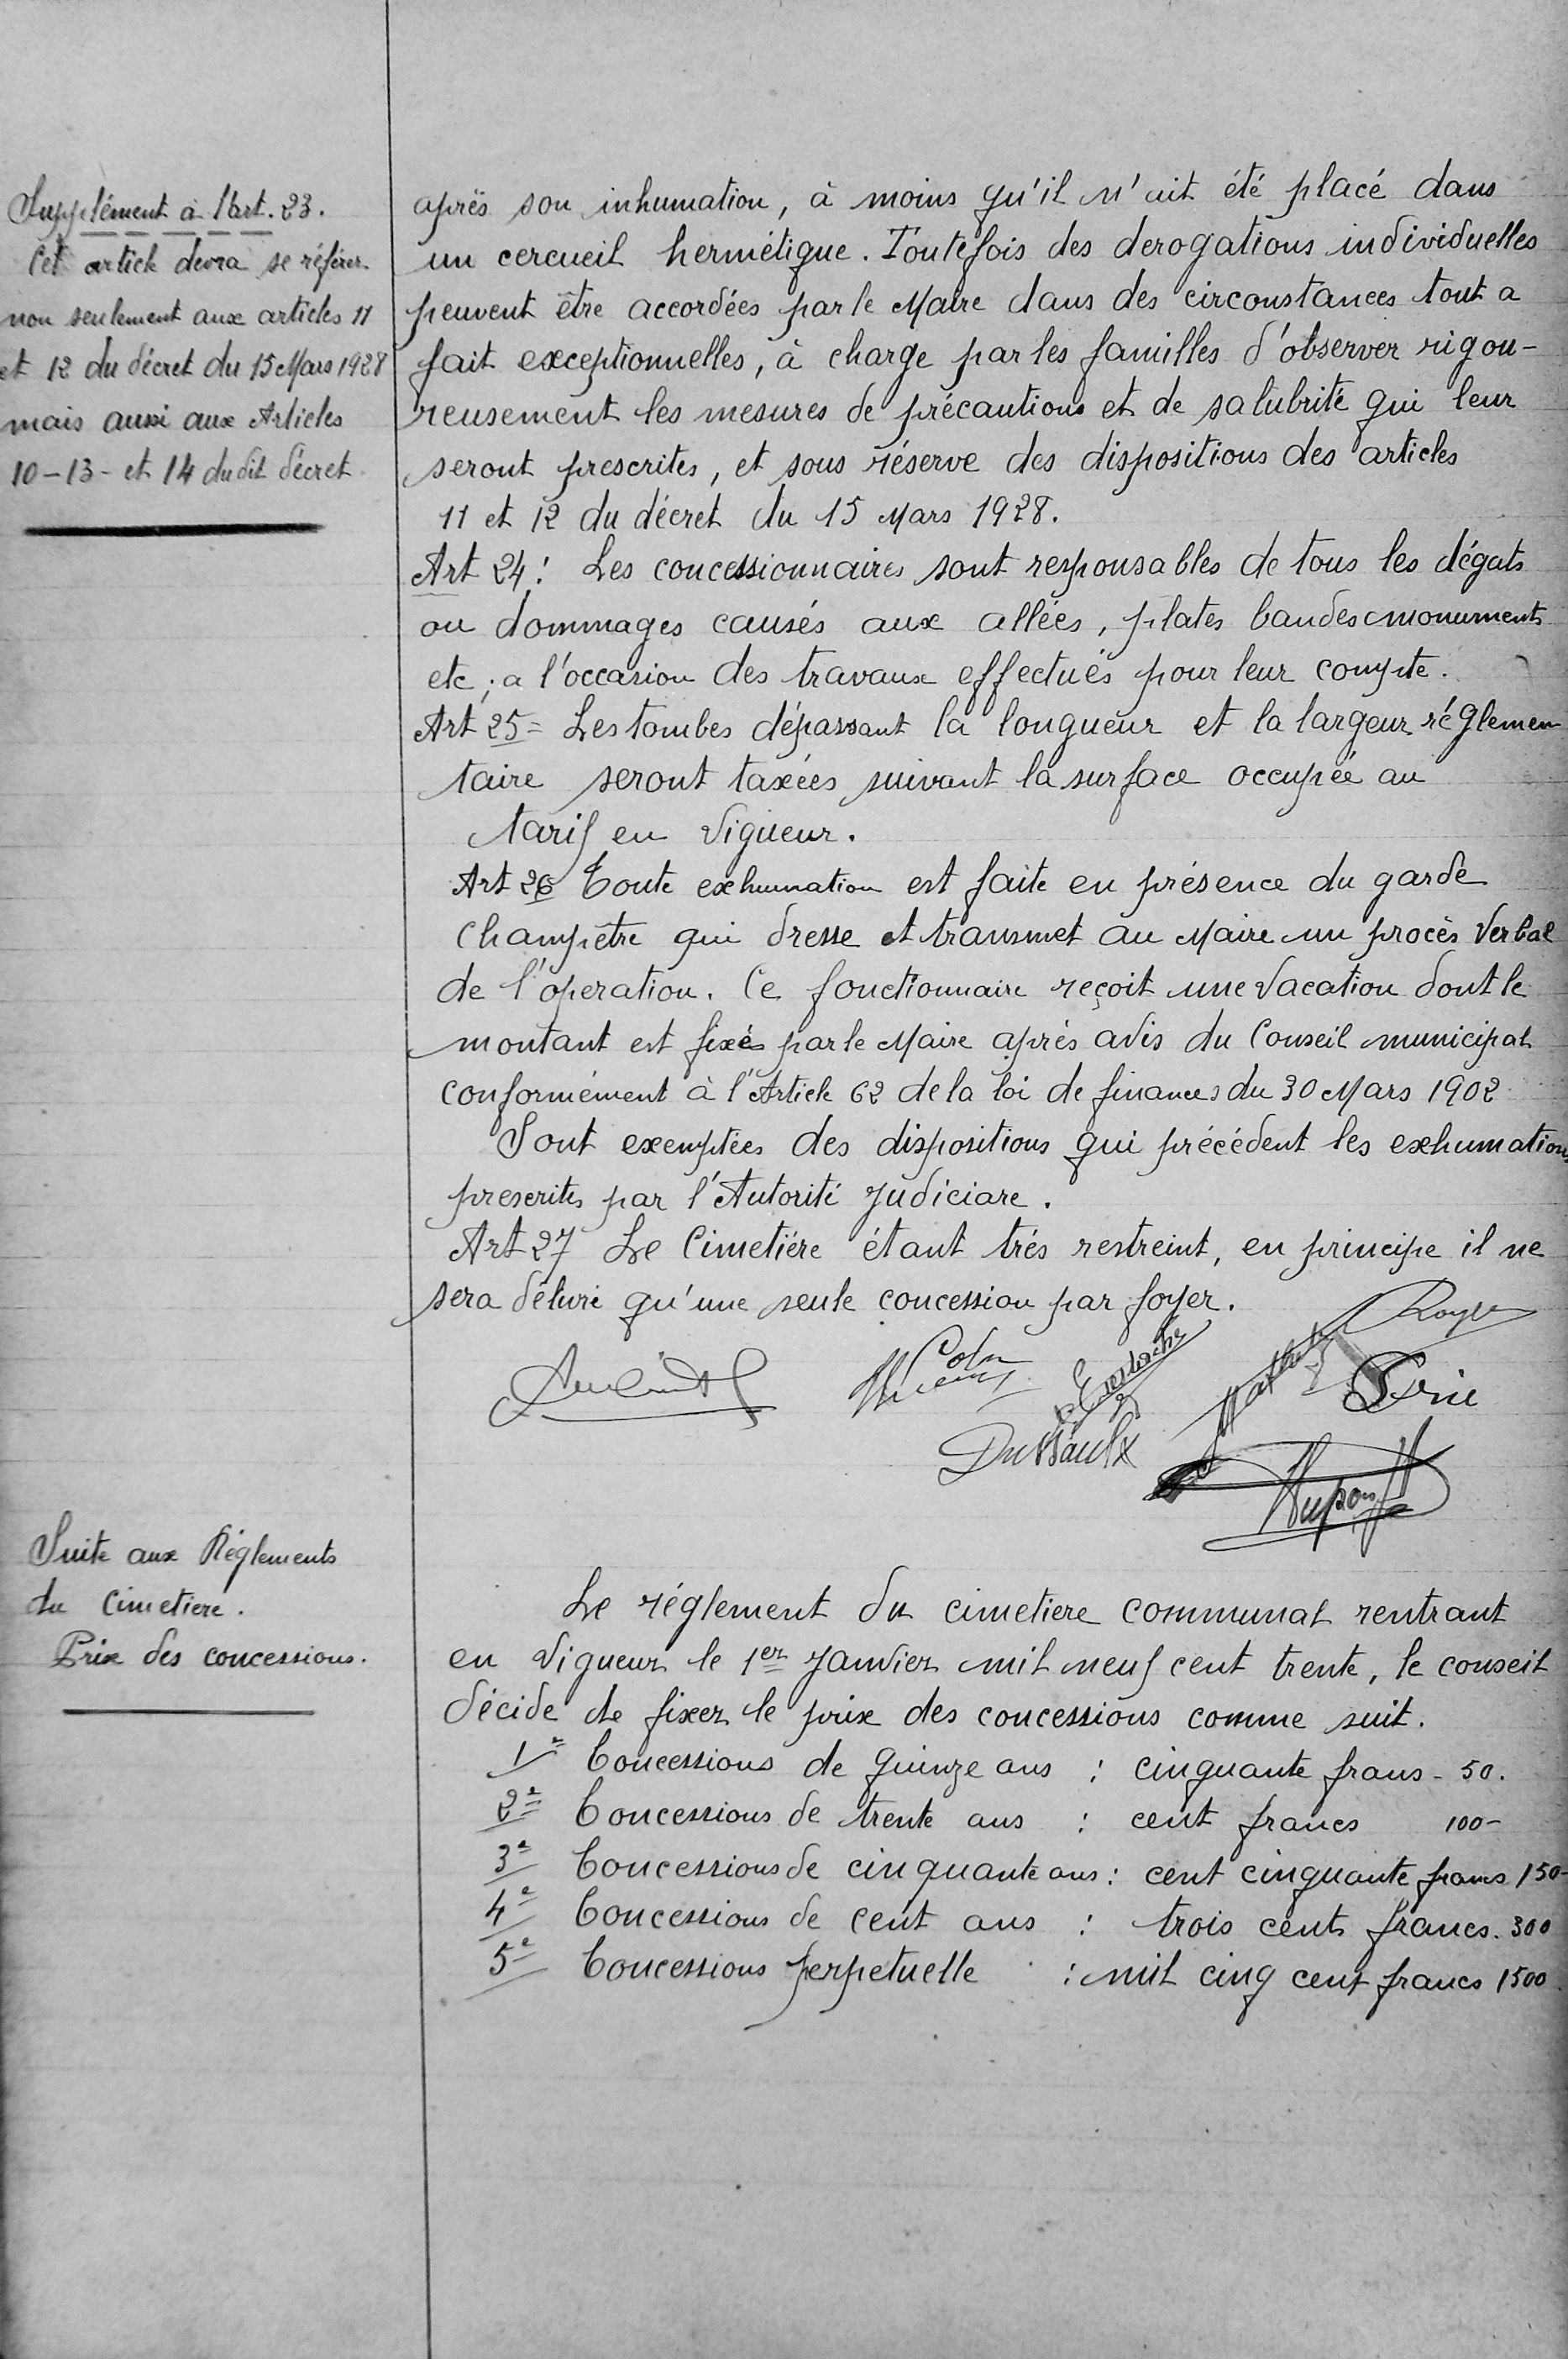 Supplément à l'art. 23.
Cet article devra se référer
non seulement aux articles 11
et 12 du décret du 15 Mars 1928
mais aussi aux Articles
10-13- et 14 dudit décret
après son inhumation, à moins qu'il n'ait été placé dans
un cercueil hermétique. Toutefois des derogations individuelles
peuvent être accordées par le Maire dans des circonstances tout a
fait exceptionnelles, à charge par les familles d'observer rigou-
reusement les mesures de précautions et de salubrité qui leur
seront prescrites, et sous réserve des dispositions des articles
11 et 12 du décret du 15 Mars 1928.
Art 24: Les concessionnaires sont responsables de tous les dégats
ou dommages causés aux allées, plates bandes monuments
etc; a l'occasion des travaux effectués pour leur compte.
Art 25= Les tombes dépassant la longueur et la largeur réglemen
taire seront taxées suivant la surface occupée au
tarif en vigueur.
Art 26 Toute exhumation est faite en présence du garde
champêtre qui dresse et transmet au Maire un procès verbal
de l'operation. Ce fonctionnaire reçoit une vacation dont le
montant est fixés par le Maire après avis du Conseil municipal
conformément à l'Article 62 de la loi de finances du 30 Mars 1902
Sont exemptées des dispositions qui précédent les exhumations
prescrites par l'Autorité judiciare.
Art 27 Le Cimetiére étant trés restreint, en principe il ne
sera délivré qu'une seule concession par foyer.
Colin
Eustache
Dussaulx
Dupont
Suite aux Réglements
du Cimetiere.
Prix des concessions.
Le réglement du cimetiere communal rentrant
en vigueur le 1er Janvier mil neuf cent trente, le conseil
décide de fixer le prix des concessions comme suit.
1e Concessions de quinze ans : cinquante frans - 50.
2e Concessions de trente ans : cent francs 100-
3e Concessions de cinquante ans : cent cinquante francs 150-
4e Concessions de cent ans : trois cents francs. 300
5e Concessions perpetuelle : mil cinq cent francs 1500